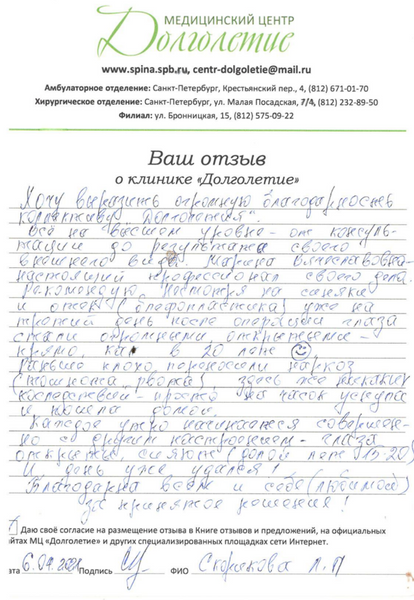 МЕДИЦИНСКИЙ ЦЕНТР
Долголетие
www.spina.spb.ru, centr-dolgoletie@mail.ru
Амбулаторное отделение: Санкт-Петербург, Крестьянский пер., 4, (812) 671-01-70
Хирургическое отделение: Санкт-Петербург, ул. Малая Посадская, 7/4, (812) 232-89-50
Филиал: ул. Бронницкая, 15, (812) 575-09-22
Ваш отзыв
о клинике «Долголетие»
Хочу выразить огромную благодарность
коллективу "Долголетия".
Всё на высшем уровне - от консуль-
тации до результата своего
внешнего вида. Марина Вячеславовна-
настоящий профессионал своего дела.
Рекомендую. Несмотря на синяки
и отёк (блефопластика) уже на
третий день после операции глаза
стали огромными открытыми -
прямо, как в 20 лет ☺
Раньше плохо переносили наркоз
(тошнота, рвота), здесь же никаких
последствий - просто на часок уснула
и пошла домой.
Каждое утро начинается совершен-
но с другим настроением - глаза
открыты, сияют (долой лет 15-20)
И день уже удался!
Благодарна всем и себе (любимой)
за принятое решение!
Даю своё согласие на размещение отзыва в Книге отзывов и предложений, на официальных
йтах МЦ «Долголетие» и других специализированных площадках сети Интернет.
ата 6.04.2021 Подпись ФИО Л.П